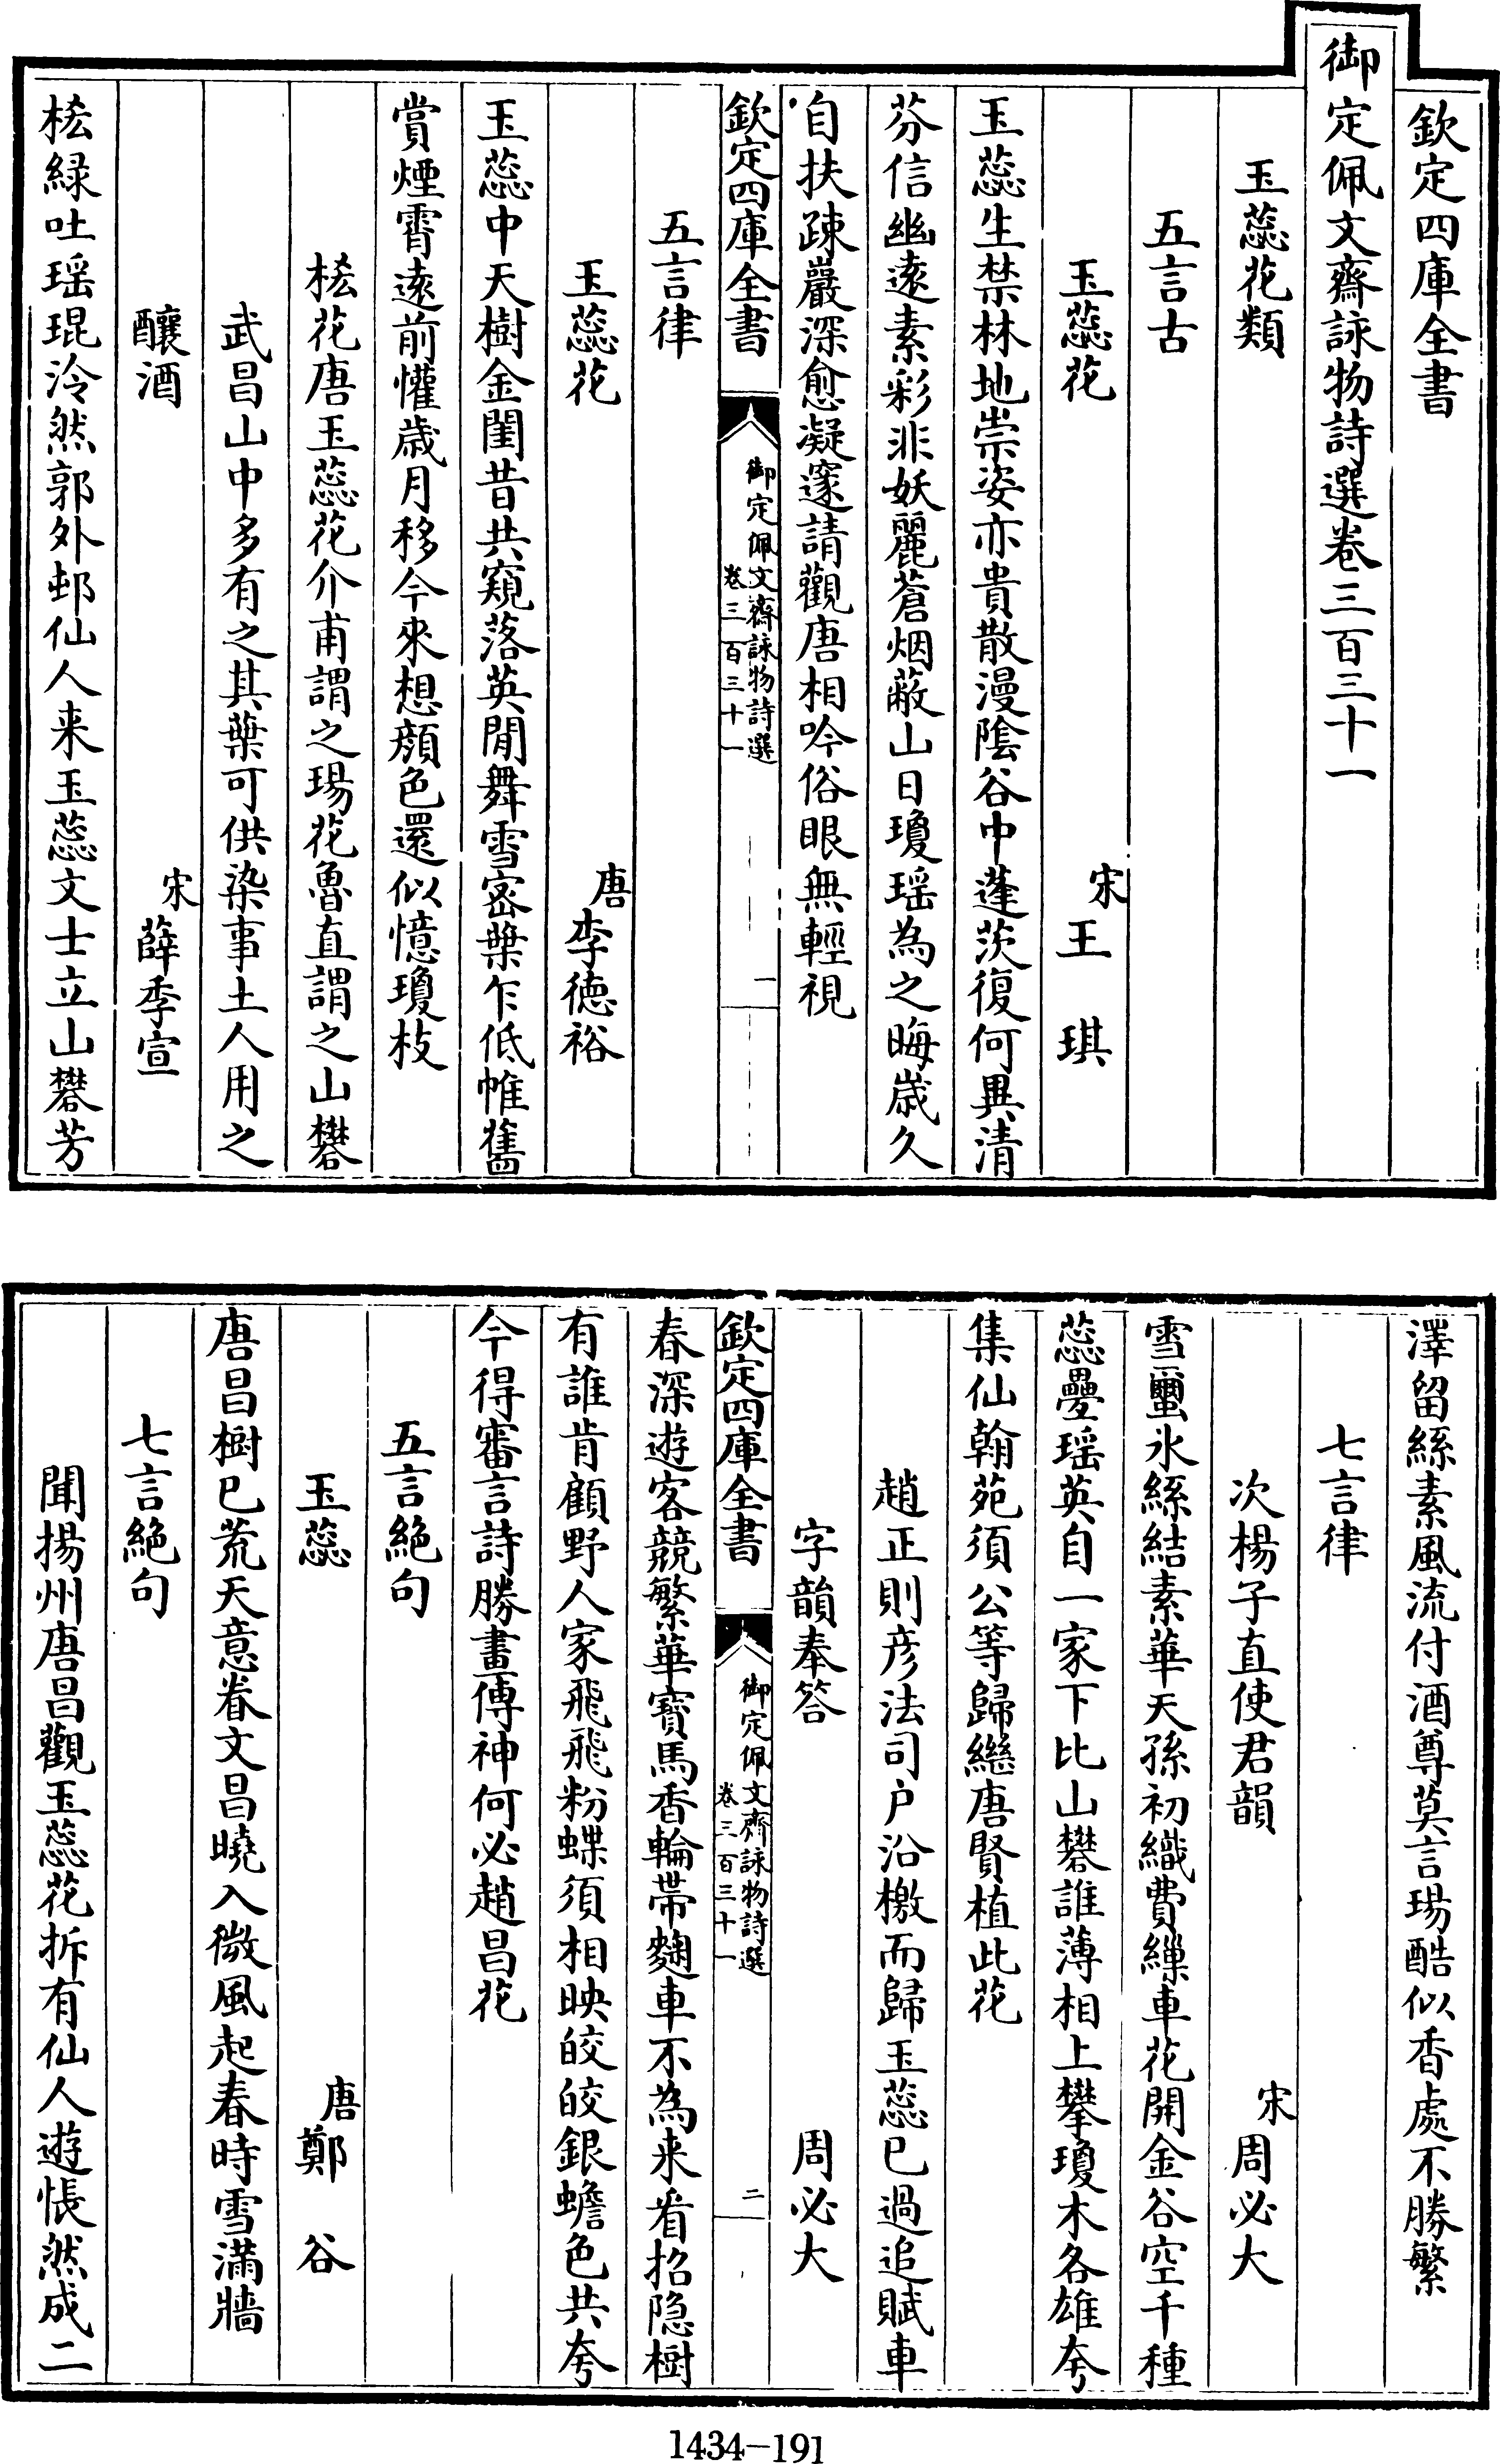 欽定四庫全書
御定佩文齋詠物詩選卷三百三十一
玉蕊花類
五言古
玉蕊花 宋 王琪
玉蕊生禁林地崇姿亦貴散漫陰谷中蓬茨復何異清
芬信幽遠素彩非妖麗蒼烟蔽山日瓊瑶為之晦歲久
自扶疎巖深愈凝邃請觀唐相吟俗眼無輕視
欽定四庫全書 御定佩文齋詠物詩選 卷三百三十一 一
五言律
玉蕊花 唐 李德裕
玉蕊中天樹金閨昔共窺落英閒舞雪密葉乍低帷舊
賞煙霄遠前懽歲月移今來想顔色還似憶瓊枝
桵花唐玉蕊花介甫謂之瑒花魯直謂之山礬
武昌山中多有之其葉可供染事土人用之
釀酒 宋 薛季宣
桵緑吐瑶琨泠然郭外邨仙人来玉蕊文士立山礬芳
澤留絲素風流付酒尊莫言瑒酷似香處不勝繁
七言律
次楊子直使君韻 宋 周必大
雪䘉氷絲結素華天孫初織費繅車花開金谷空千種
蕊疊瑶英自一家下比山礬誰薄相上攀瓊木各雄夸
集仙翰苑須公等歸繼唐賢植此花
趙正則彦法司户沿檄而歸玉蕊已過追賦車
字韻奉答 周必大
欽定四庫全書 御定佩文齋詠物詩選 卷三百三十一 二
春深遊客競繁華寶馬香輪帶麴車不為来看招隐樹
有誰肯顧野人家飛飛粉蝶須相映皎皎銀蟾色共夸
今得審言詩勝畫傳神何必趙昌花
五言絶句
玉蕊 唐 鄭谷
唐昌樹已荒天意眷文昌曉入微風起春時雪滿牆
七言絶句
聞揚州唐昌觀玉蕊花拆有仙人遊悵然成二
1434-191